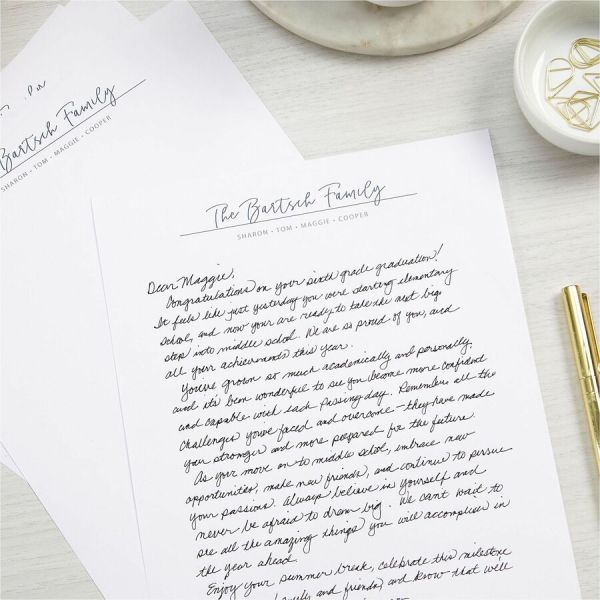 Bartsch Family
SHARON • TOM • MAGGIE • COOPER
The Bartsch Family
SHARON • TOM • MAGGIE • COOPER
Dear Maggie,
Congratulations on your sixth grade graduation!
It feels like just yesterday you were starting elementary
school, and now your are ready to take the next big
step into middle school. We are so proud of you, and
all your achievements this year.
You've grown so much academically and personally,
and it's been wonderful to see you become more confident
and capable with each passing day. Remember all the
challenges you've faced and overcome – they have made
your stronger and more prepared for the future.
As your move on to middle school, embrace new
opportunities, make new friends, and continue to pursue
your passions. Always believe in yourself and
never be afraid to dream big. We can't wait to
see all the amazing things you will accomplish in
the year ahead.
Enjoy your summer break, celebrate this milestone
family and friends, and know that we'll